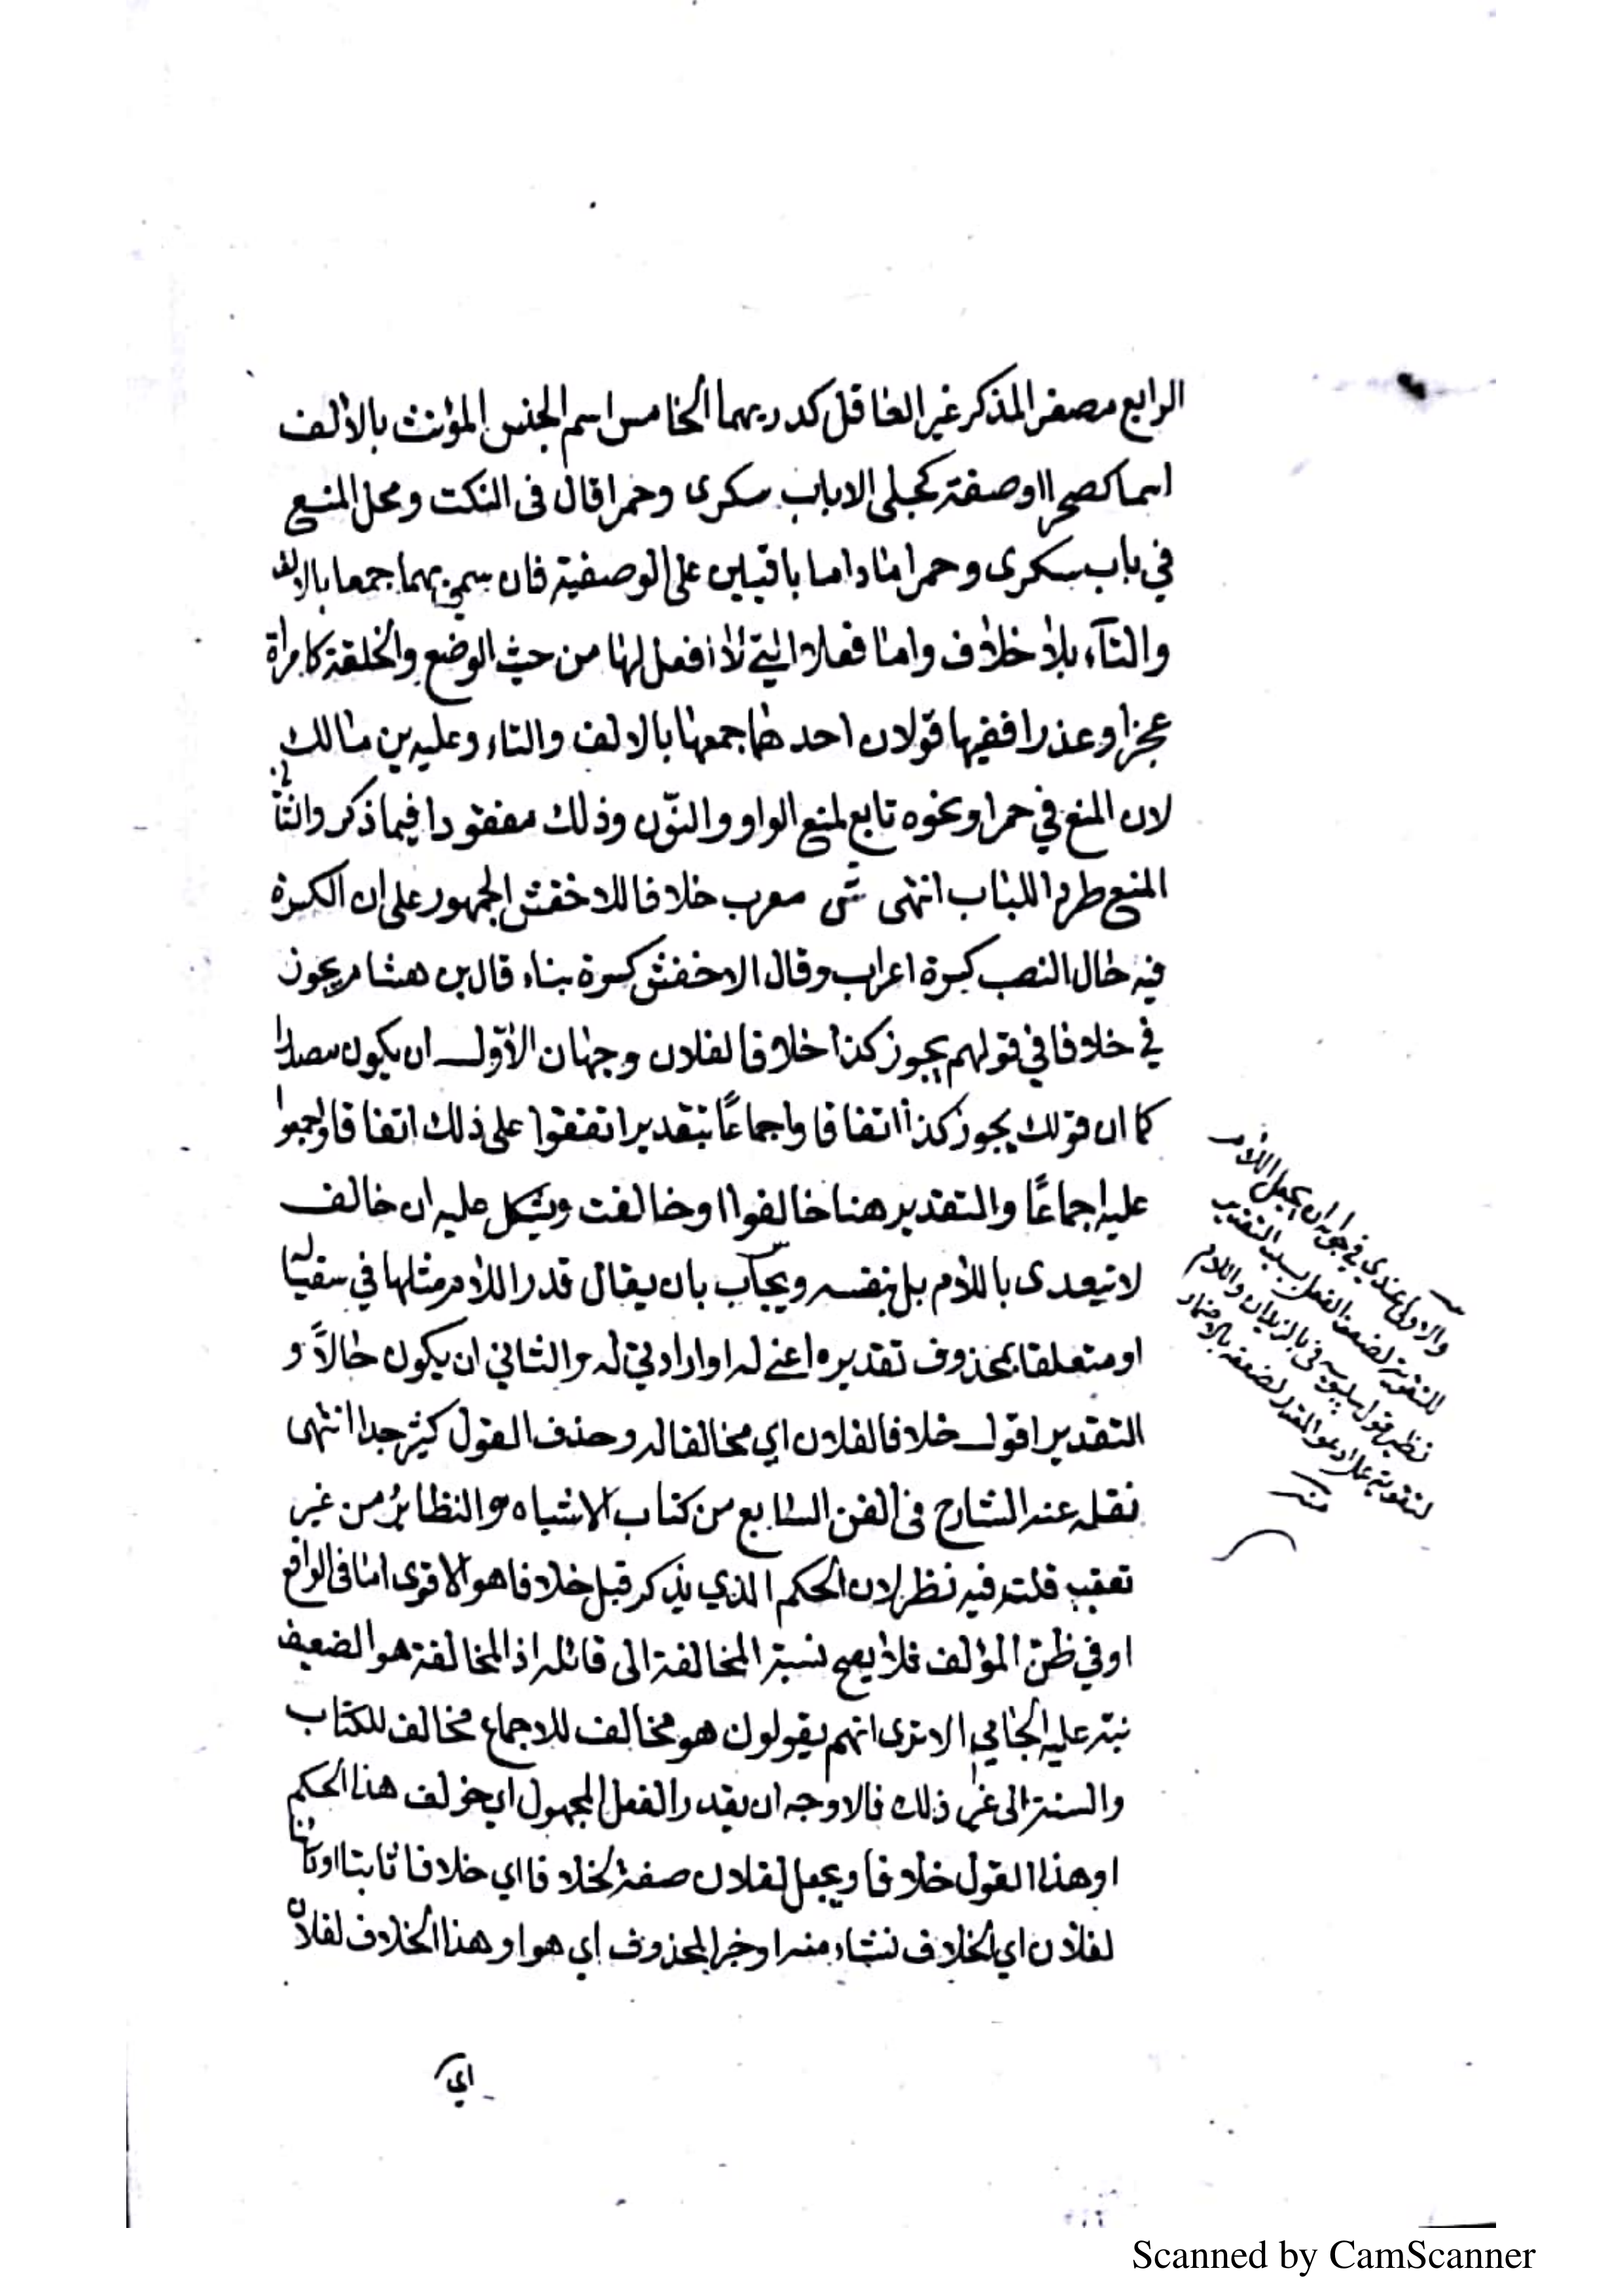 الرابع مصغر المذكر غير العاقل كدريهما الخامس اسم الجنس المؤنث بالالف
اسما كصحرا او صفة كحبلى الا باب سكرى وحمرا قال فى النكت ومحل المنع
في باب سكرى وحمرا ما داما باقيين على الوصفية فان سمي بهما جمعا بالالف
والتآء بلا خلاف واما فعلا التي لا افعل لها من حيث الوضع والخلقة كامراة
عجزا وعذرا ففيها قولان احدهما جمعها بالالف والتاء وعليه بن مالك
لان المنع في حمرا ونحوه تابع لمنع الواو والنون وذلك مفقودا فيما ذكر والثاني
المنع طردا للباب انتهى ش معرب خلافا للاخفش الجمهور على ان الكسرة
فيه حال النصب كسرة اعراب وقال الاخفش كسرة بناء قال بن هشام يجوز
في خلافا في قولهم يجوز كذا خلافا لفلان وجهان الاول ان يكون مصدرا
كما ان قولك يجوز كذا اتفاقا واجماعًا بتقدير اتفقوا على ذلك اتفاقا واجمعوا
عليه اجماعًا والتقدير هنا خالفوا او خالفت ويشكل عليه ان خالف
لا تيعدى باللام بل بنفسه ويجاب بان يقال قدر اللام مثلها في سقيا له
او متعلقا بمحذوف تقديره اعني له او ارادتي له والثاني ان يكون حالاً و
التقدير اقول خلافا لفلان اي مخالفا له وحذف القول كثير جدا انتهى
نقله عنه الشارح فى الفن السابع من كتاب الاشباه والنظائر من غير
تعقيب قلت وفيه نظر لان الحكم الذي يذكر قبل خلافا هو الاقوى اما فى الواقع
او في ظن المؤلف فلا يصح نسبة المخالفة الى قائله اذ المخالفة هو الضعيف
نبه عليه الجامي الا ترى انهم يقولون هو مخالف للاجماع مخالف للكتاب
والسنة الى غير ذلك فالاوجه ان يقدر الفعل المجهول اي خولف هذا الحكم
او هذا القول خلافا ويجعل لفلان صفة لخلافا اي خلافا ثابتا او كائنا
لفلان اي الخلاف نشاء منه او خبرا لمحذوف اي هو او هذا الخلاف لفلان
والاولى عندي في جوابه ان يجعل اللام
للتقوية لضعف الفعل بسبب التقدير
نظير قول سيبويه فى يا لزيد ان واللام
لتقوية عمل ادعو المقدر لضعفه بالاضمار
منه
اي
Scanned by CamScanner